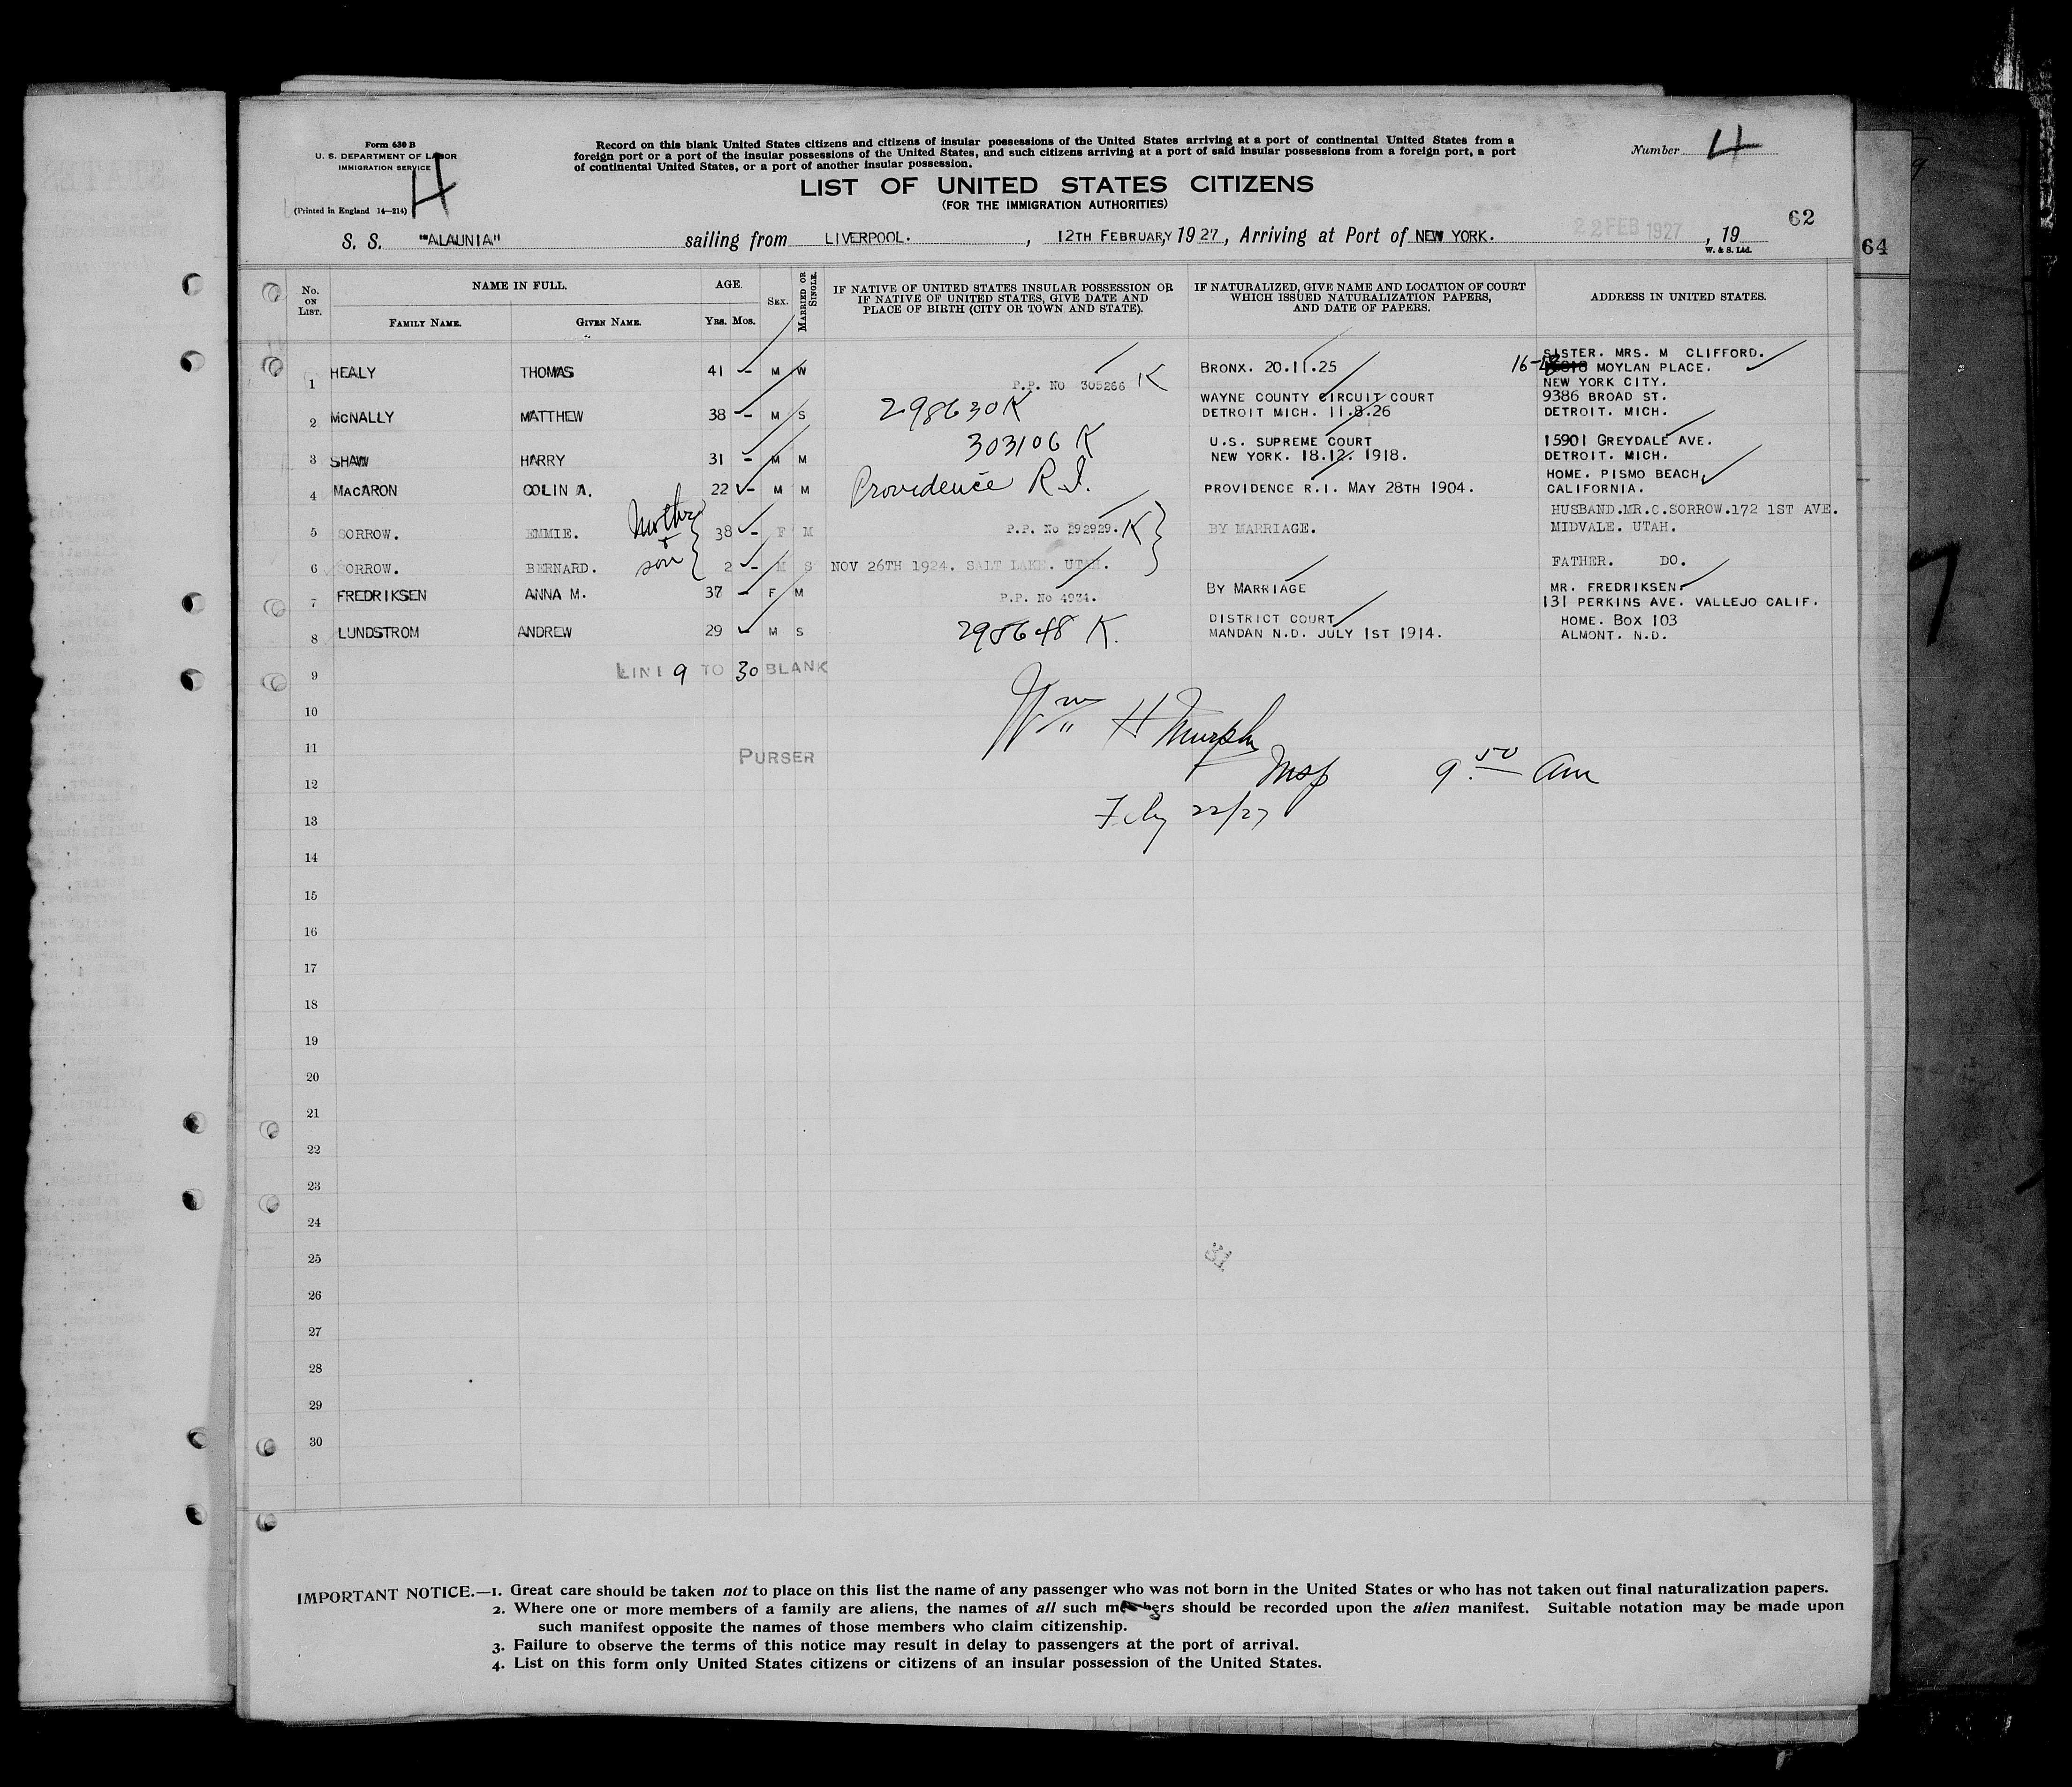 Form 630 B
U. S. DEPARTMENT OF LABOR
IMMIGRATION SERVICE
4
(Printed in England 14—214)
Record on this blank United States citizens and citizens of insular possessions of the United States arriving at a port of continental United States from a
foreign port or a port of the insular possessions of the United States, and such citizens arriving at a port of said insular possessions from a foreign port, a port
of continental United States, or a port of another insular possession.
Number 4
LIST OF UNITED STATES CITIZENS
(FOR THE IMMIGRATION AUTHORITIES)
62
64
S. S. "ALAUNIA" sailing from LIVERPOOL. , 12TH FEBRUARY, 1927, Arriving at Port of NEW YORK. 22 FEB 1927, 19
W. & S. Ltd.
No. ON LIST. NAME IN FULL. FAMILY NAME. GIVEN NAME. AGE. YRS. MOS. SEX. MARRIED OR SINGLE. IF NATIVE OF UNITED STATES INSULAR POSSESSION OR IF NATIVE OF UNITED STATES, GIVE DATE AND PLACE OF BIRTH (CITY OR TOWN AND STATE). IF NATURALIZED, GIVE NAME AND LOCATION OF COURT WHICH ISSUED NATURALIZATION PAPERS, AND DATE OF PAPERS. ADDRESS IN UNITED STATES.
1 HEALY THOMAS 41 - M W P.P. No 305266 K BRONX. 20.11.25 SISTER. MRS. M CLIFFORD.
16-18 MOYLAN PLACE.
NEW YORK CITY.
2 McNALLY MATTHEW 38 - M S 298630 K WAYNE COUNTY CIRCUIT COURT
DETROIT MICH. 11.8.26 9386 BROAD ST.
DETROIT. MICH.
3 SHAW HARRY 31 - M M 303106 K U.S. SUPREME COURT
NEW YORK. 18.12. 1918. 15901 GREYDALE AVE.
DETROIT. MICH.
4 MACARON COLIN A. 22 - M M Providence R.I. PROVIDENCE R.I. MAY 28TH 1904. HOME. PISMO BEACH,
CALIFORNIA.
Mother + son
5 SORROW. EMMIE. 38 - F M P.P. No 292929. K BY MARRIAGE. HUSBAND.MR.C.SORROW.172 1ST AVE.
MIDVALE. UTAH.
6 SORROW. BERNARD. 2 - M S NOV 26TH 1924. SALT LAKE. UTAH. FATHER. DO.
7 FREDRIKSEN ANNA M. 37 - F M P.P. No 4934. BY MARRIAGE MR. FREDRIKSEN
131 PERKINS AVE. VALLEJO CALIF.
8 LUNDSTROM ANDREW 29 - M S 298648 K. DISTRICT COURT
MANDAN N.D. JULY 1ST 1914. HOME. BOX 103
ALMONT. N.D.
9 LINE 9 TO 30 BLANK
10
Wm H Murphy
11 PURSER
Insp 9 50 am
12
13 Feby 22/27
14
15
16
17
18
19
20
21
22
23
24
25 31
26
27
28
29
30
IMPORTANT NOTICE.—1. Great care should be taken not to place on this list the name of any passenger who was not born in the United States or who has not taken out final naturalization papers.
2. Where one or more members of a family are aliens, the names of all such members should be recorded upon the alien manifest. Suitable notation may be made upon
such manifest opposite the names of those members who claim citizenship.
3. Failure to observe the terms of this notice may result in delay to passengers at the port of arrival.
4. List on this form only United States citizens or citizens of an insular possession of the United States.